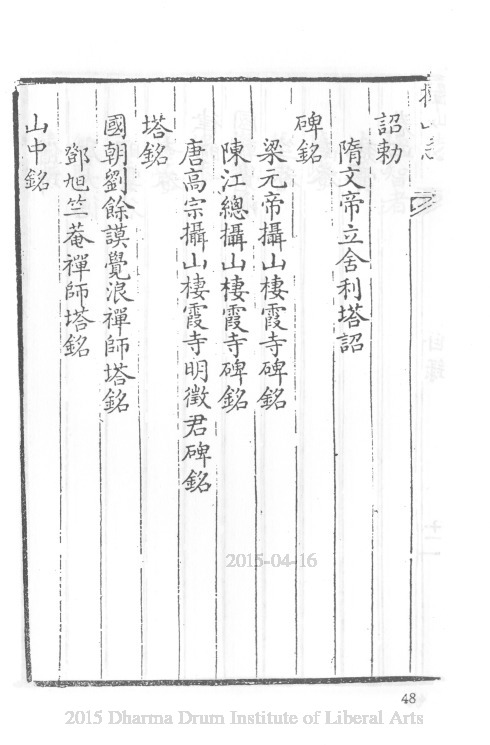 詔勅
隋文帝立舍利塔詔
碑銘
梁元帝攝山棲霞寺碑銘
陳江總攝山棲霞寺碑銘
唐高宗攝山棲霞寺明徵君碑銘
塔銘
國朝劉餘謨覺浪禪師塔銘
鄧旭竺菴禪師塔銘
山中銘
2015-04-16
48
2015 Dharma Drum Institute of Liberal Arts